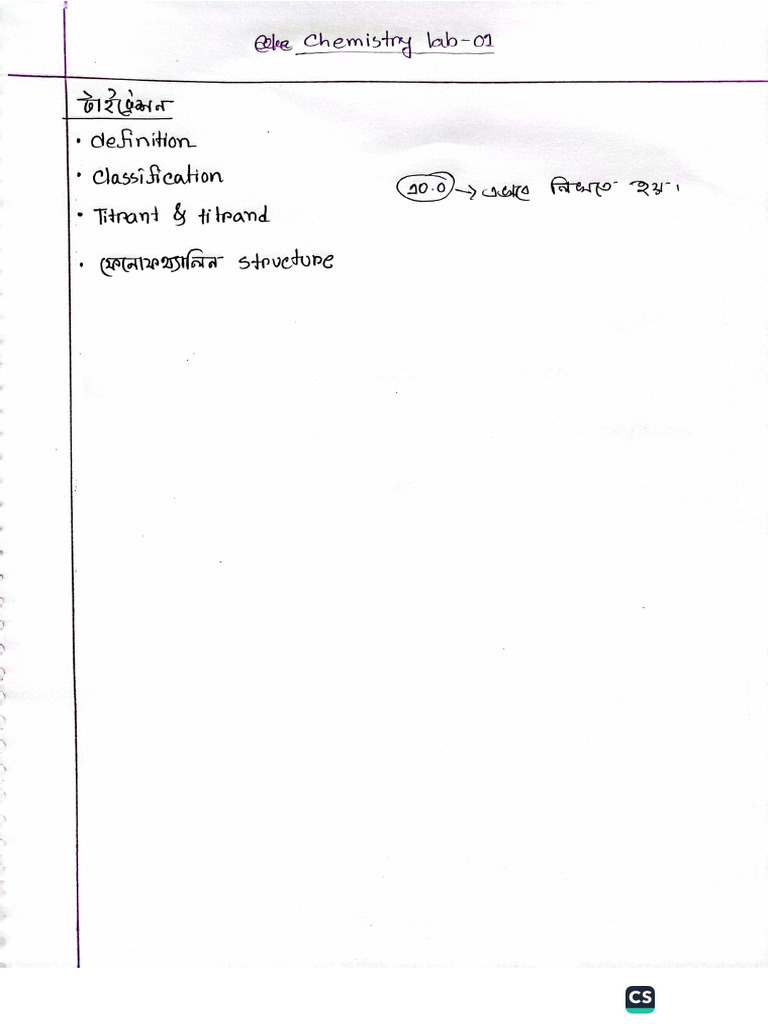 Chemistry lab-01
টাইট্রেশন
• definition
• Classification
১০.০ → এভাবে লিখতে হয়।
• Titrant & titrand
• ফেনোফথ্যালিন structure
CS